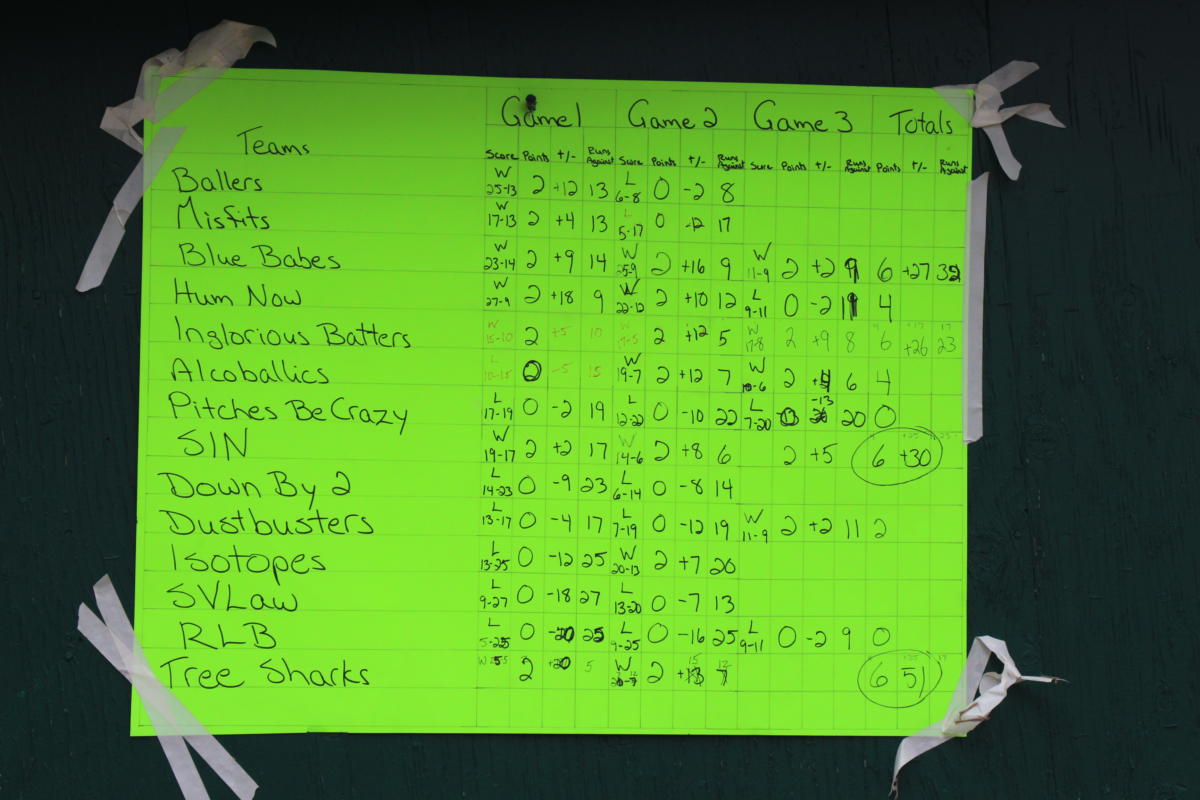 Game 1 Game 2 Game 3 Totals
Teams
Score Points +/- Runs Against Score Points +/- Runs Against Score Points +/- Runs Against Points +/- Runs Against
Ballers W 25-13 2 +12 13 L 6-8 0 -2 8
Misfits W 17-13 2 +4 13 L 5-17 0 -12 17
Blue Babes W 23-14 2 +9 14 W 25-9 2 +16 9 W 11-9 2 +2 9 6 +27 32
Hum Now W 27-9 2 +18 9 W 22-12 2 +10 12 L 9-11 0 -2 11 4
Inglorious Batters W 15-10 2 +5 10 W 17-5 2 +12 5 W 17-8 2 +9 8 6 +26 23
Alcoballics L 10-15 -5 15 W 19-7 2 +12 7 W 10-6 2 6 4
Pitches Be Crazy L 17-19 0 -2 19 L 12-22 0 -10 22 L 7-20 0 -13 20 0
SIN W 19-17 2 +2 17 W 14-6 2 +8 6 2 +5 6 +30
Down By 2 L 14-23 0 -9 23 L 6-14 0 -8 14
Dustbusters L 13-17 0 -4 17 L 7-19 0 -12 19 W 11-9 2 +2 11 2
Isotopes L 13-25 0 -12 25 W 20-13 2 +7 20
SVLaw L 9-27 0 -18 27 L 13-20 0 -7 13
RLB L 5-25 0 -20 25 L 9-25 0 -16 25 L 9-11 0 -2 9 0
Tree Sharks W 2 +20 5 W 2 6 51